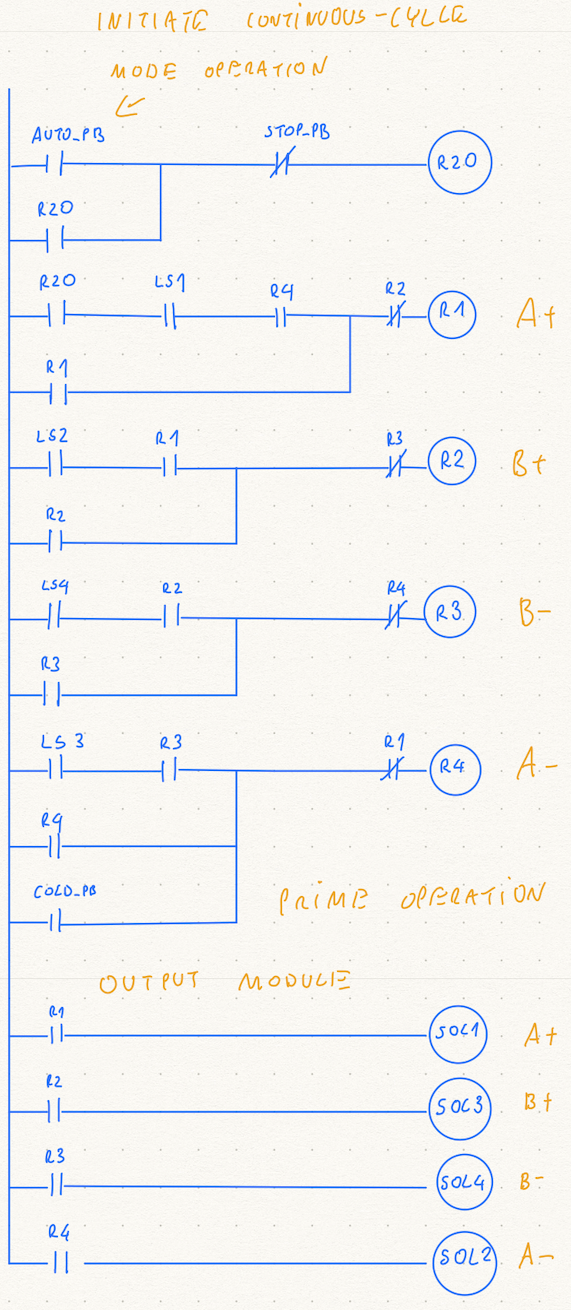 INITIATE CONTINUOUS-CYCLE
MODE OPERATION
AUTO_PB STOP_PB
R20
R20
R20 LS1 R4 R2
R1 A+
R1
LS2 R1 R3
R2 B+
R2
LS4 R2 R4
R3 B-
R3
LS3 R3 R1
R4 A-
R4
COLD_PB
PRIME OPERATION
OUTPUT MODULE
R1
SOL1 A+
R2
SOL3 B+
R3
SOL4 B-
R4
SOL2 A-